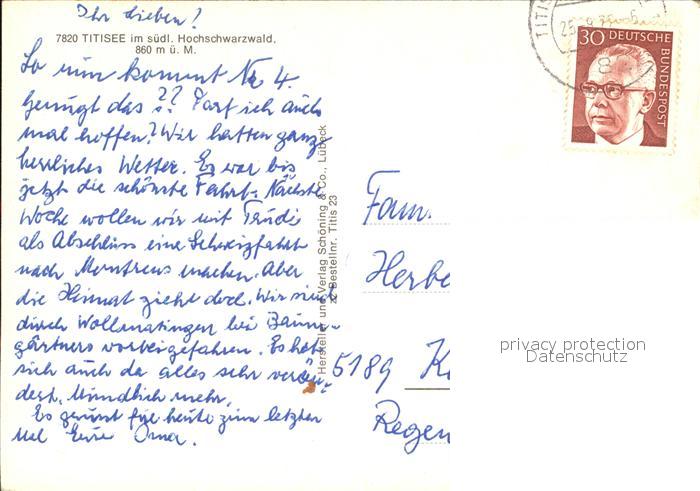 Ihr Lieben!
7820 TITISEE im südl. Hochschwarzwald,
860 m ü. M.
So nun kommt Nr. 4.
Genügt das?? Darf ich auch
mal hoffen? Wir hatten ganz
herrliches Wetter. Es war bis
jetzt die schönste Fahrt. Nächste
Woche wollen wir mit Trudi
als Abschluss eine Schweizfahrt
nach Montreux machen. Aber
die Heimat zieht doch. Wir sind
durch Wollmatingen bei Baum-
gärtners vorbeigefahren. Es hat
sich auch da alles sehr verän-
dert. Mündlich mehr.
Es grüsst für heute zum letzten
Mal Eure Oma.
Hersteller und Verlag Schöning & Co., Lübeck
Bestellnr. Titis 23
TITIS
25.
30 DEUTSCHE
BUNDESPOST
Fam.
Herbe
5189
Regen
privacy protection
Datenschutz